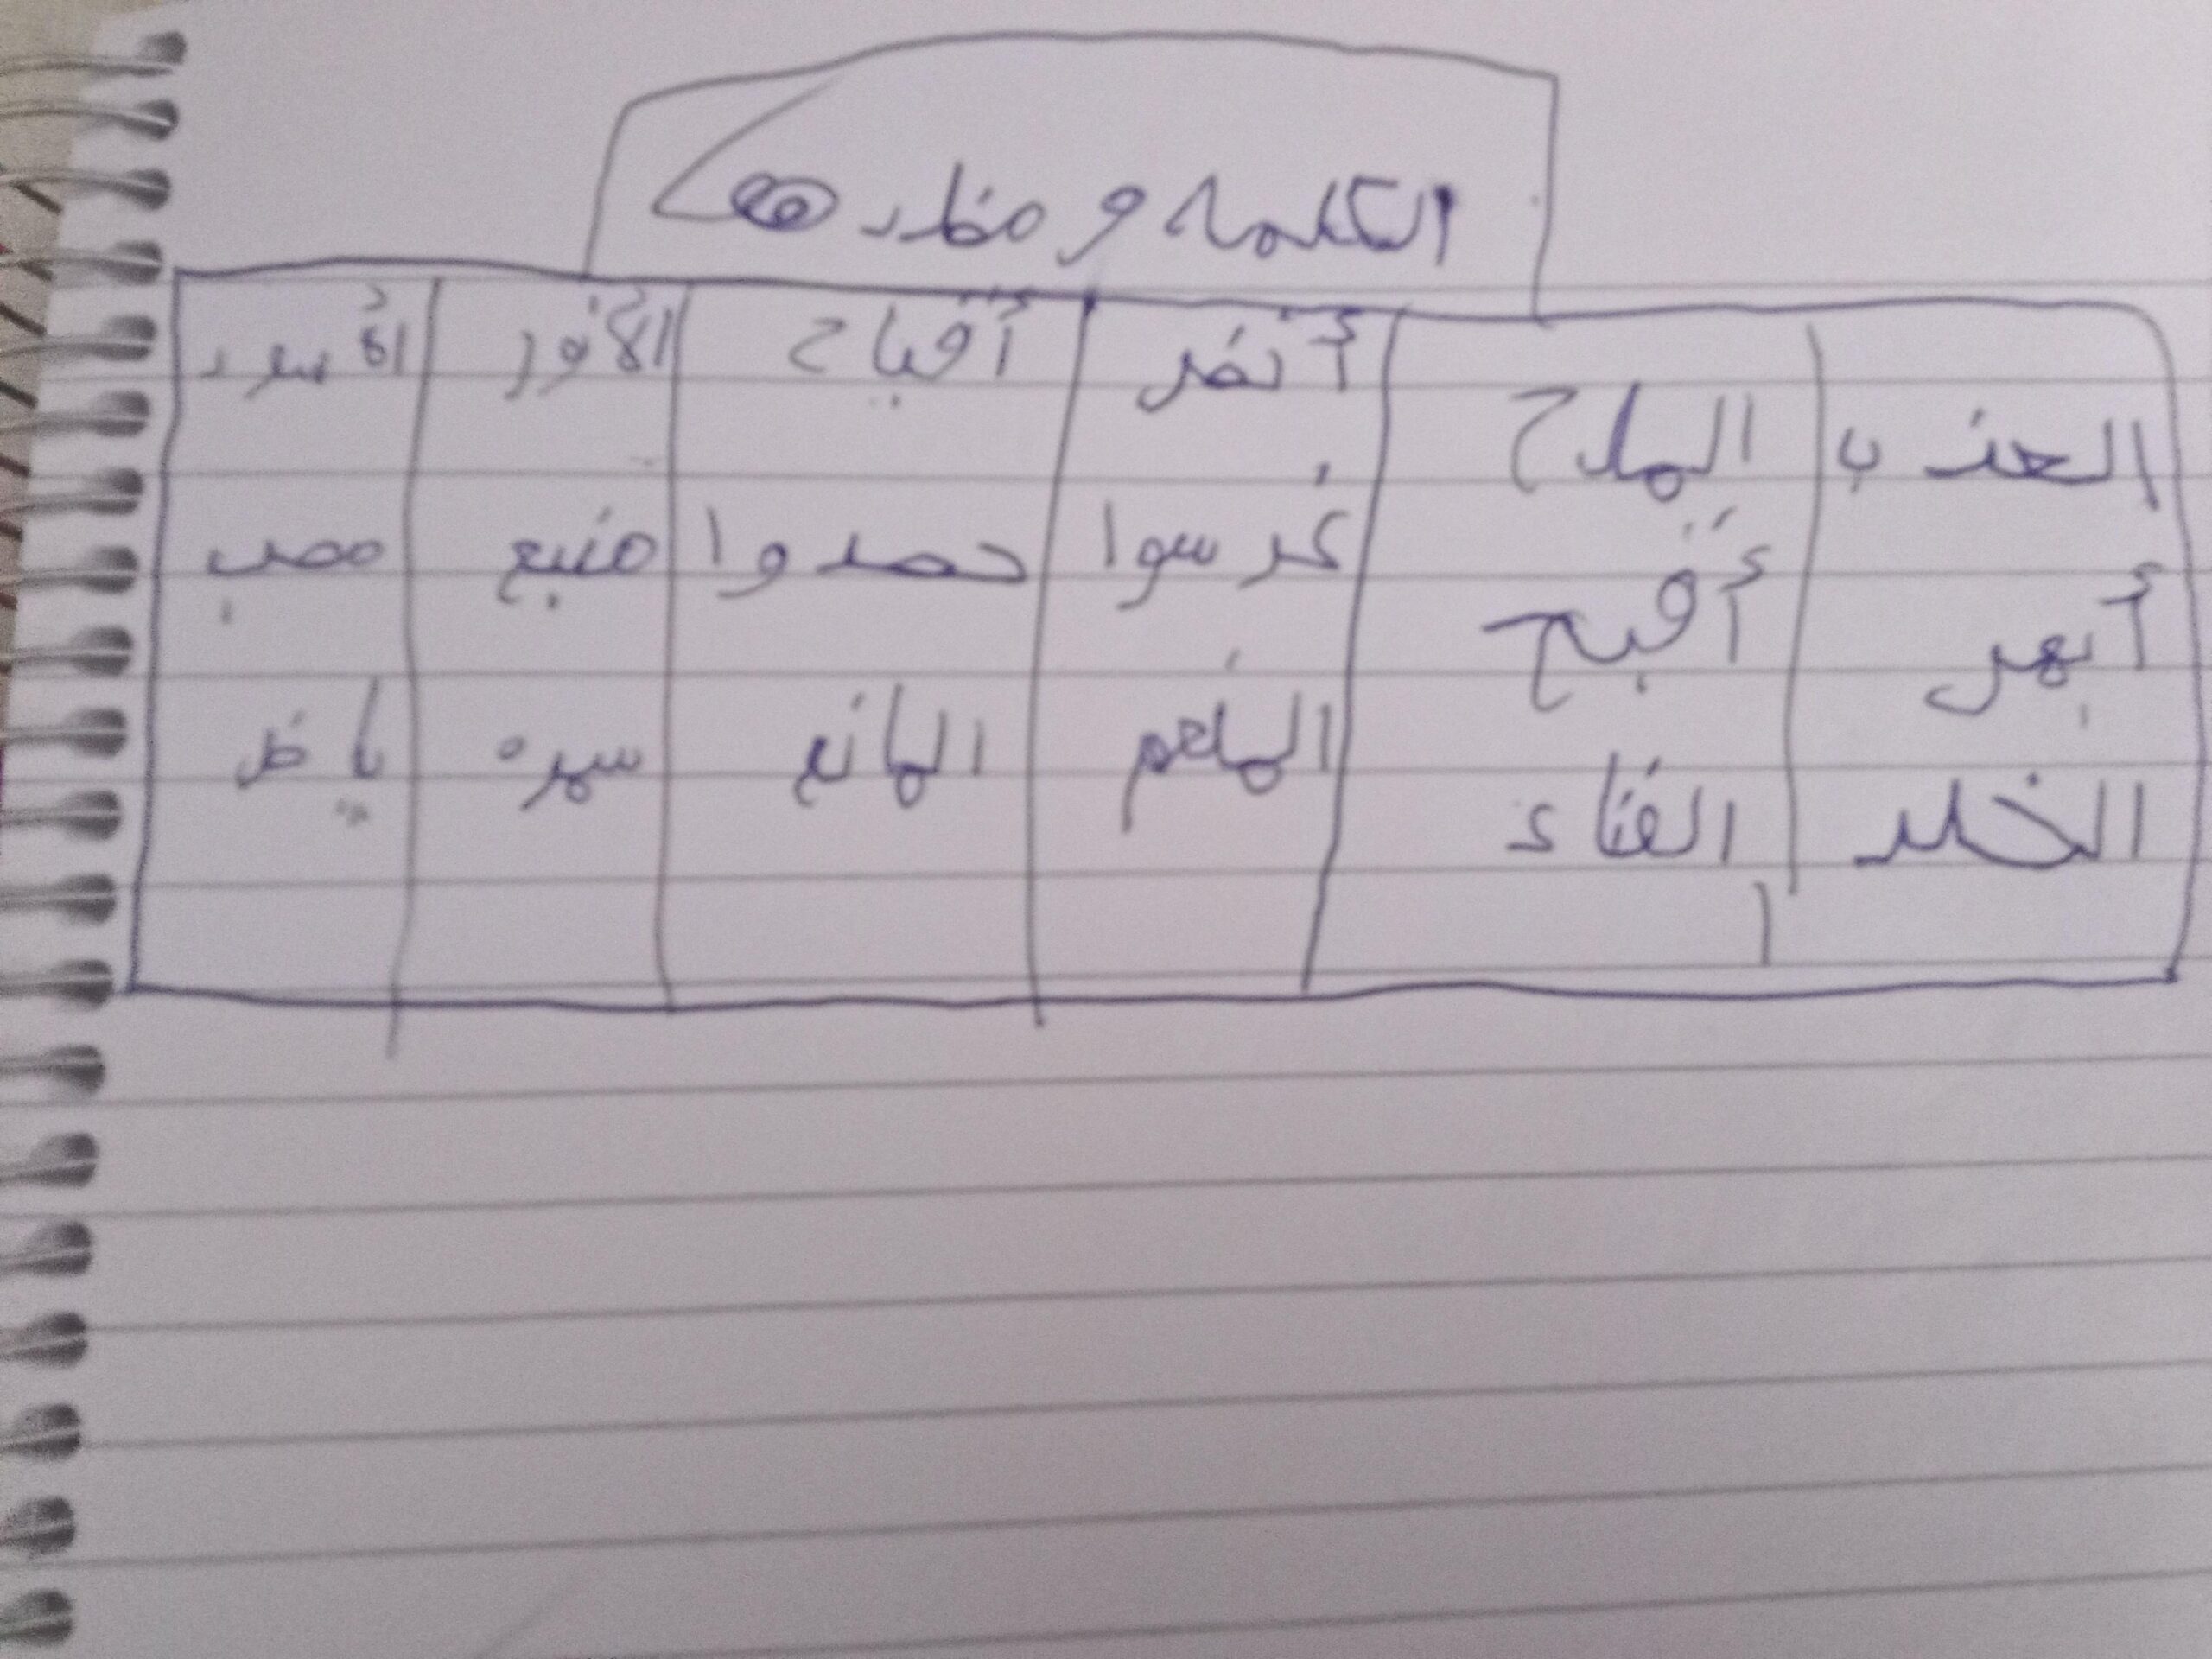 الكلمة و مظدرها
العذب الملح أنضر أقباح الأنور الأسود
أبهر أقبح غرسوا حصدوا منبع مصب
الخلد الفناء الملعم المانع سره